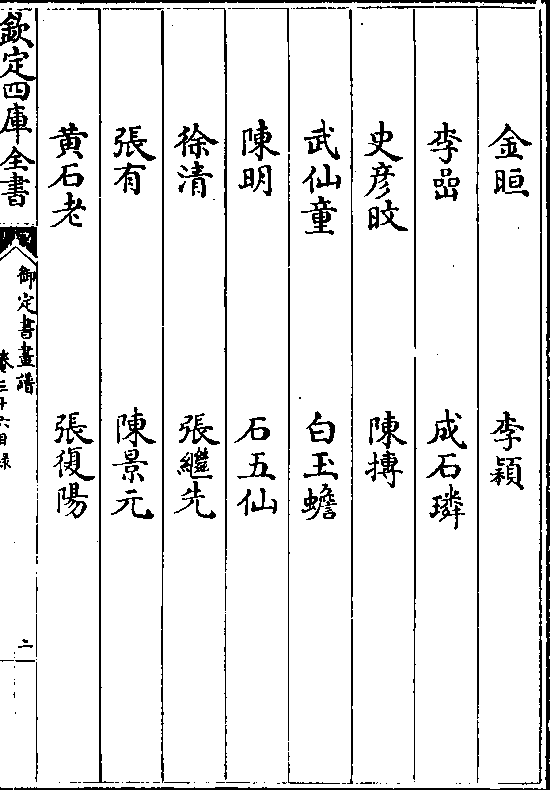 金晅　李穎
李嵒　成石璘
史彦旼　陳摶
武仙童　白玉蟾
陳明　石五仙
徐清　張繼先
張有　陳景元
黃石老　張復陽
欽定四庫全書　御定書畫譜　卷三十六目錄　二